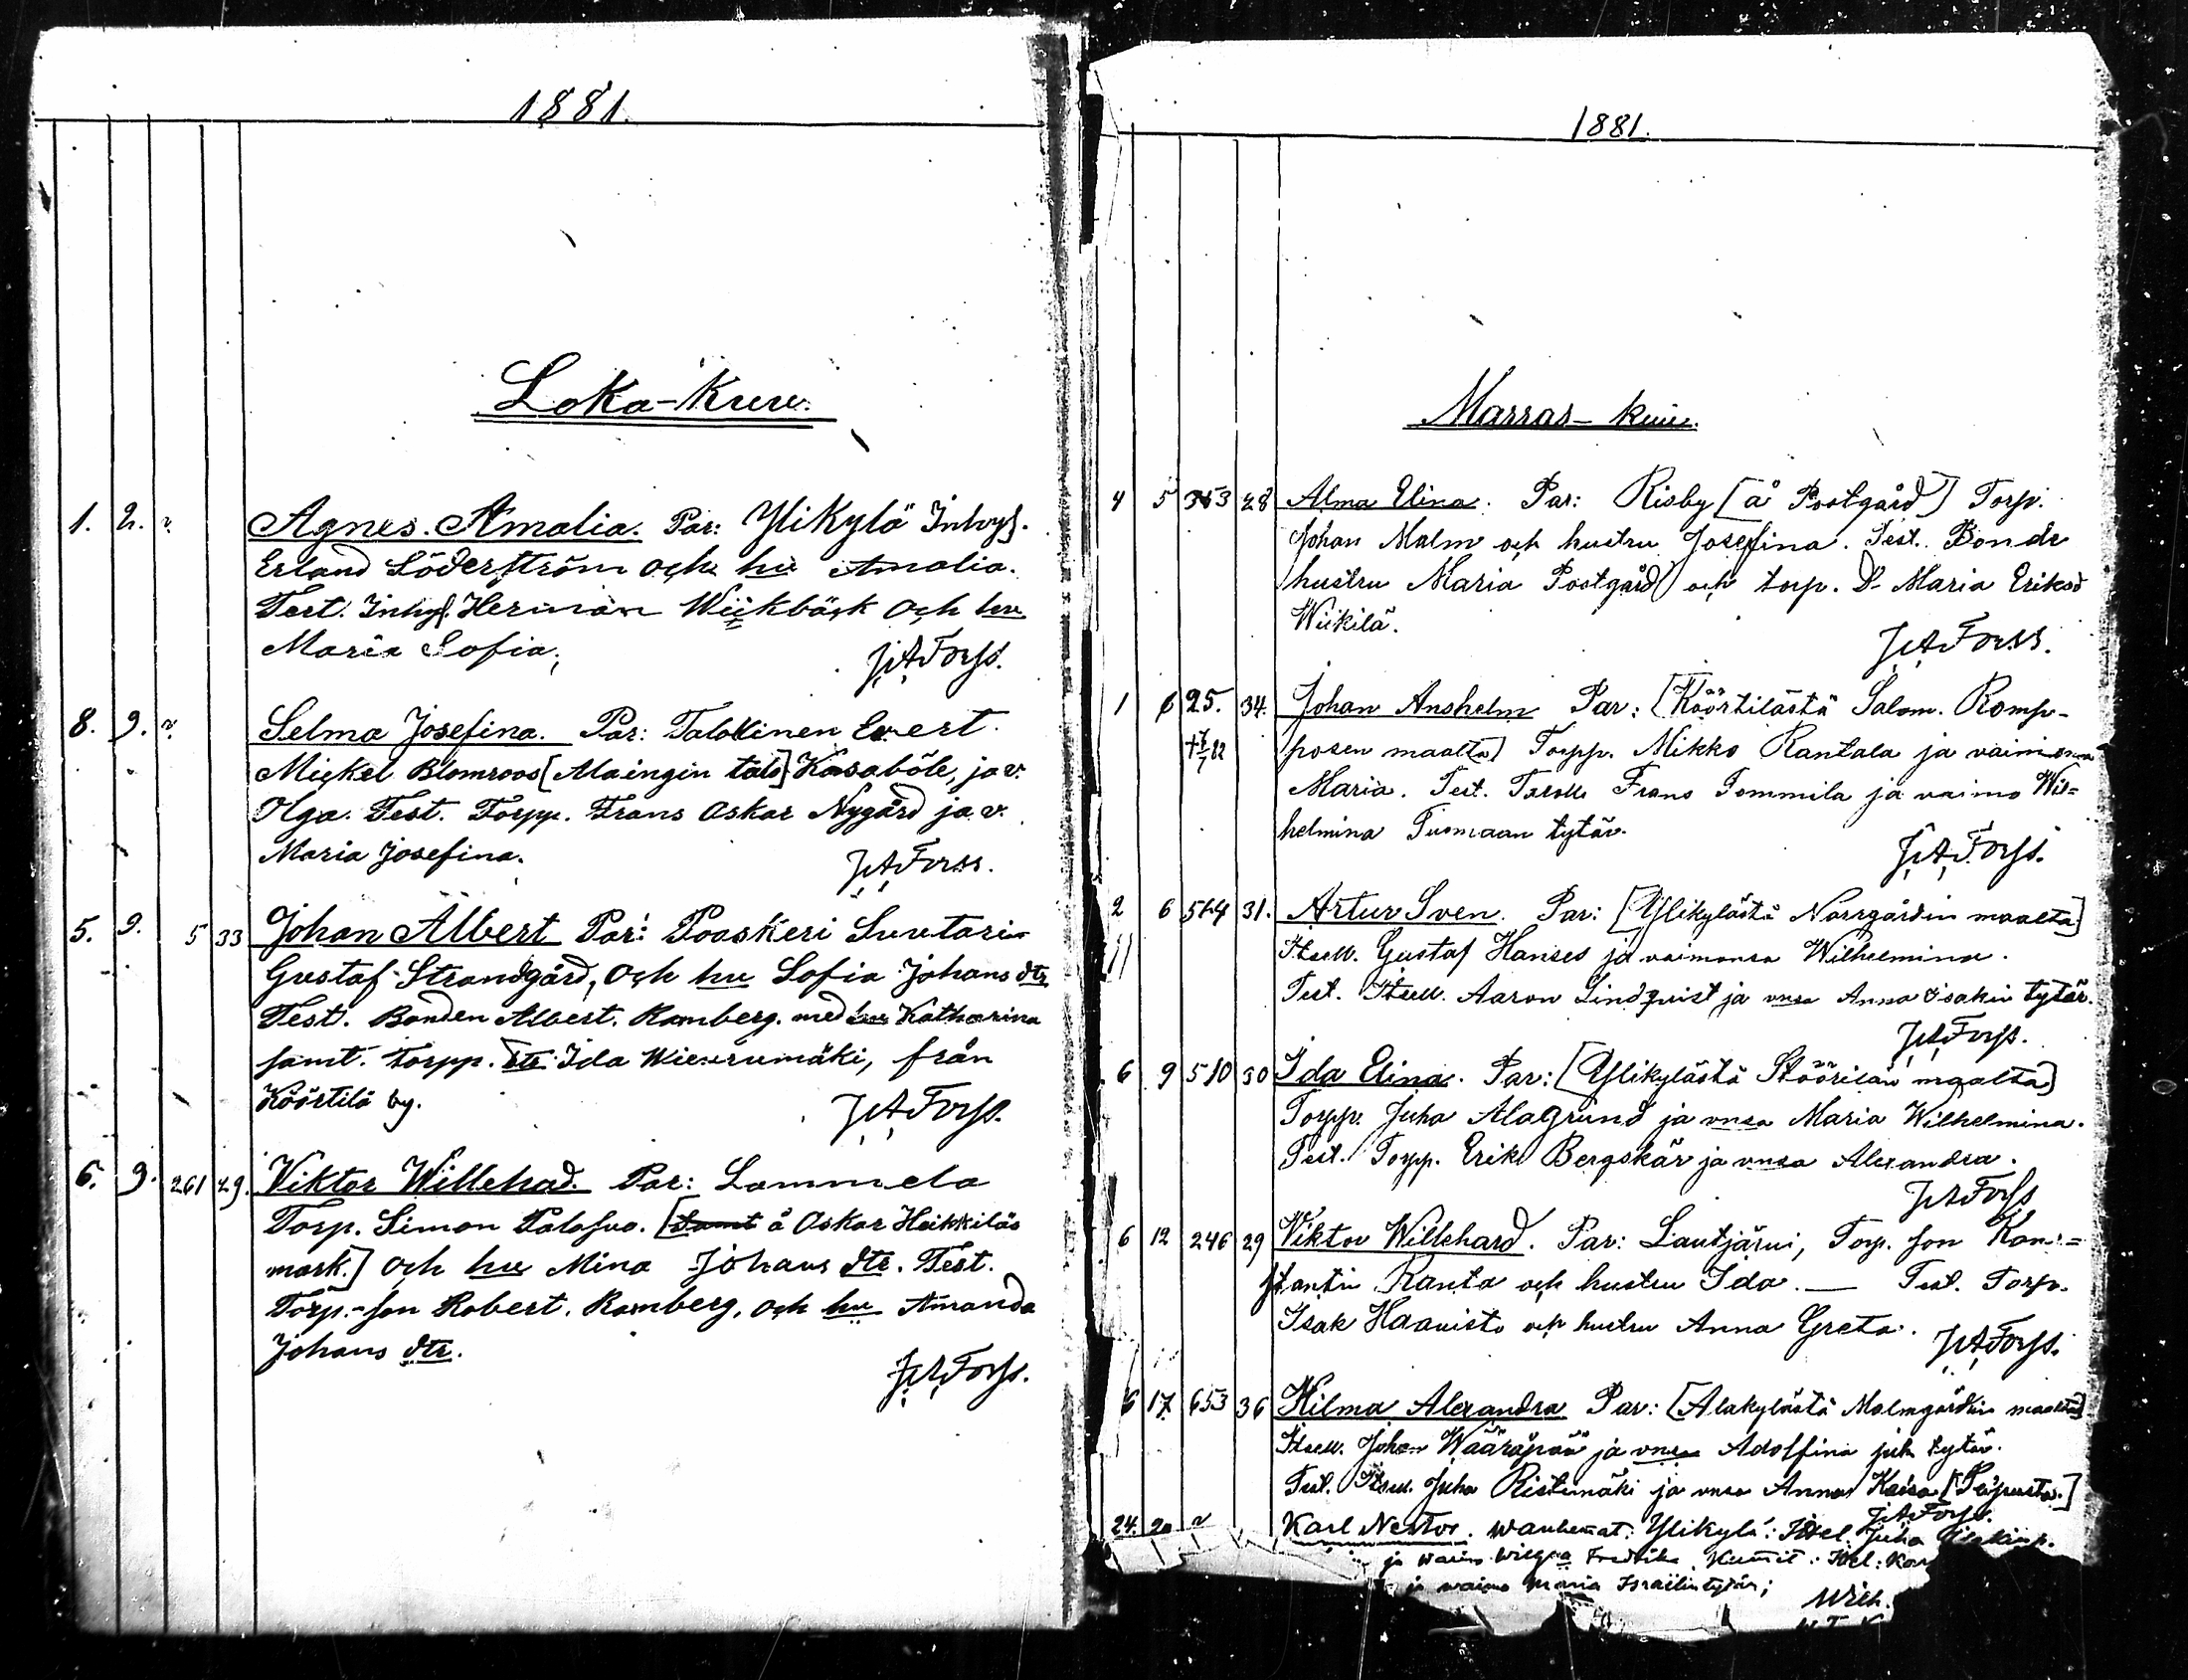 1881.
Loka-Kuu.
1. 2. v. Agnes. Amalia. Par: Ylikylä Inhys.
Erland Söderström och hu Amalia.
Test. Inhys. Herman Wiikbäck och hu
Maria Sofia,
JAForss.
8. 9. v. Selma Josefina. Par: Talollinen Evert
Mickel Blomroos [Alaingin talo] Kasaböle, ja v.
Olga. Test. Torpp. Frans Oskar Nygård ja v.
Maria Josefina.
JAForss.
5. 9. 5 33 Johan Albert Par: Paaskeri Suutari
Gustaf Strandgård, och hu Sofia Johans dtr
Test. Bonden Albert. Ramberg. med hu Katharina
samt. torpp. dtr Ida Wierumäki, från
Köörtilä by.
JAForss.
6. 9. 261 29. Viktor Willehad. Par: Lammela
Torp. Simon Palosuo. [samt å Oskar Heikkiläs
mark.] och hu Mina Johans dtr. Test.
Torp.-son Robert. Ramberg, och hu Amanda
Johans dtr.
JAForss.
1881.
Marras-kuu.
4 5 353 28 Alma Elina. Par: Risby [å Postgård] Torp.
Johan Malm och hustru Josefina. Test. Bonde
hustru Maria Postgård och torp. D. Maria Eriksd
Wiikilä.
JAForss.
1 6 25. 34. Johan Anshelm Par: [Köörtilästä Salom. Romp-
+ 7/7 82 posen maalta] Torpp. Mikko Rantala ja vaimonsa
Maria. Test. Taroll. Frans Tommila ja vaimo Wil=
helmina Tuomaan tytär.
JAForss.
2 6 514 31. Artur Sven. Par: [Ylikylästä Norrgårdin maalta]
11 Itsell. Gustaf Hanses ja vaimonsa Wilhelmina.
Test. Itsell. Aaron Lindqvist ja vnsa Anna Isakin tytär.
JAForss.
6 9 510 30 Ida Elina. Par: [Ylikylästä Stöörilän maalta]
Torpp. Juha Alagrund ja vnsa Maria Wilhelmina.
Test. Torpp. Erik Bergskär ja vnsa Alexandra.
JAForss
6 12 246 29 Viktor Willehard. Par: Lautjärvi, Torp. son Kons=
stantin Ranta och hustru Ida. — Test. Torp.
Isak Haavisto och hustru Anna Greta.
JAForss.
6 17 653 36 Hilma Alexandra Par: [Alakylästä Malmgårdin maalta]
Itsell. Johan Wääräpää ja vnsa Adolfina juh tytär.
Test. Itsell. Juha Ristimäki ja vnsa Anna Kaisa
JAForss.
24. 20 v Karl Nestor. wanhemat: Ylikylä: Itsel: Juha
ja waimo Fredrika. Kummit: Itsel: Kar
ja waimo Maria Israelintytär;
Wilh.